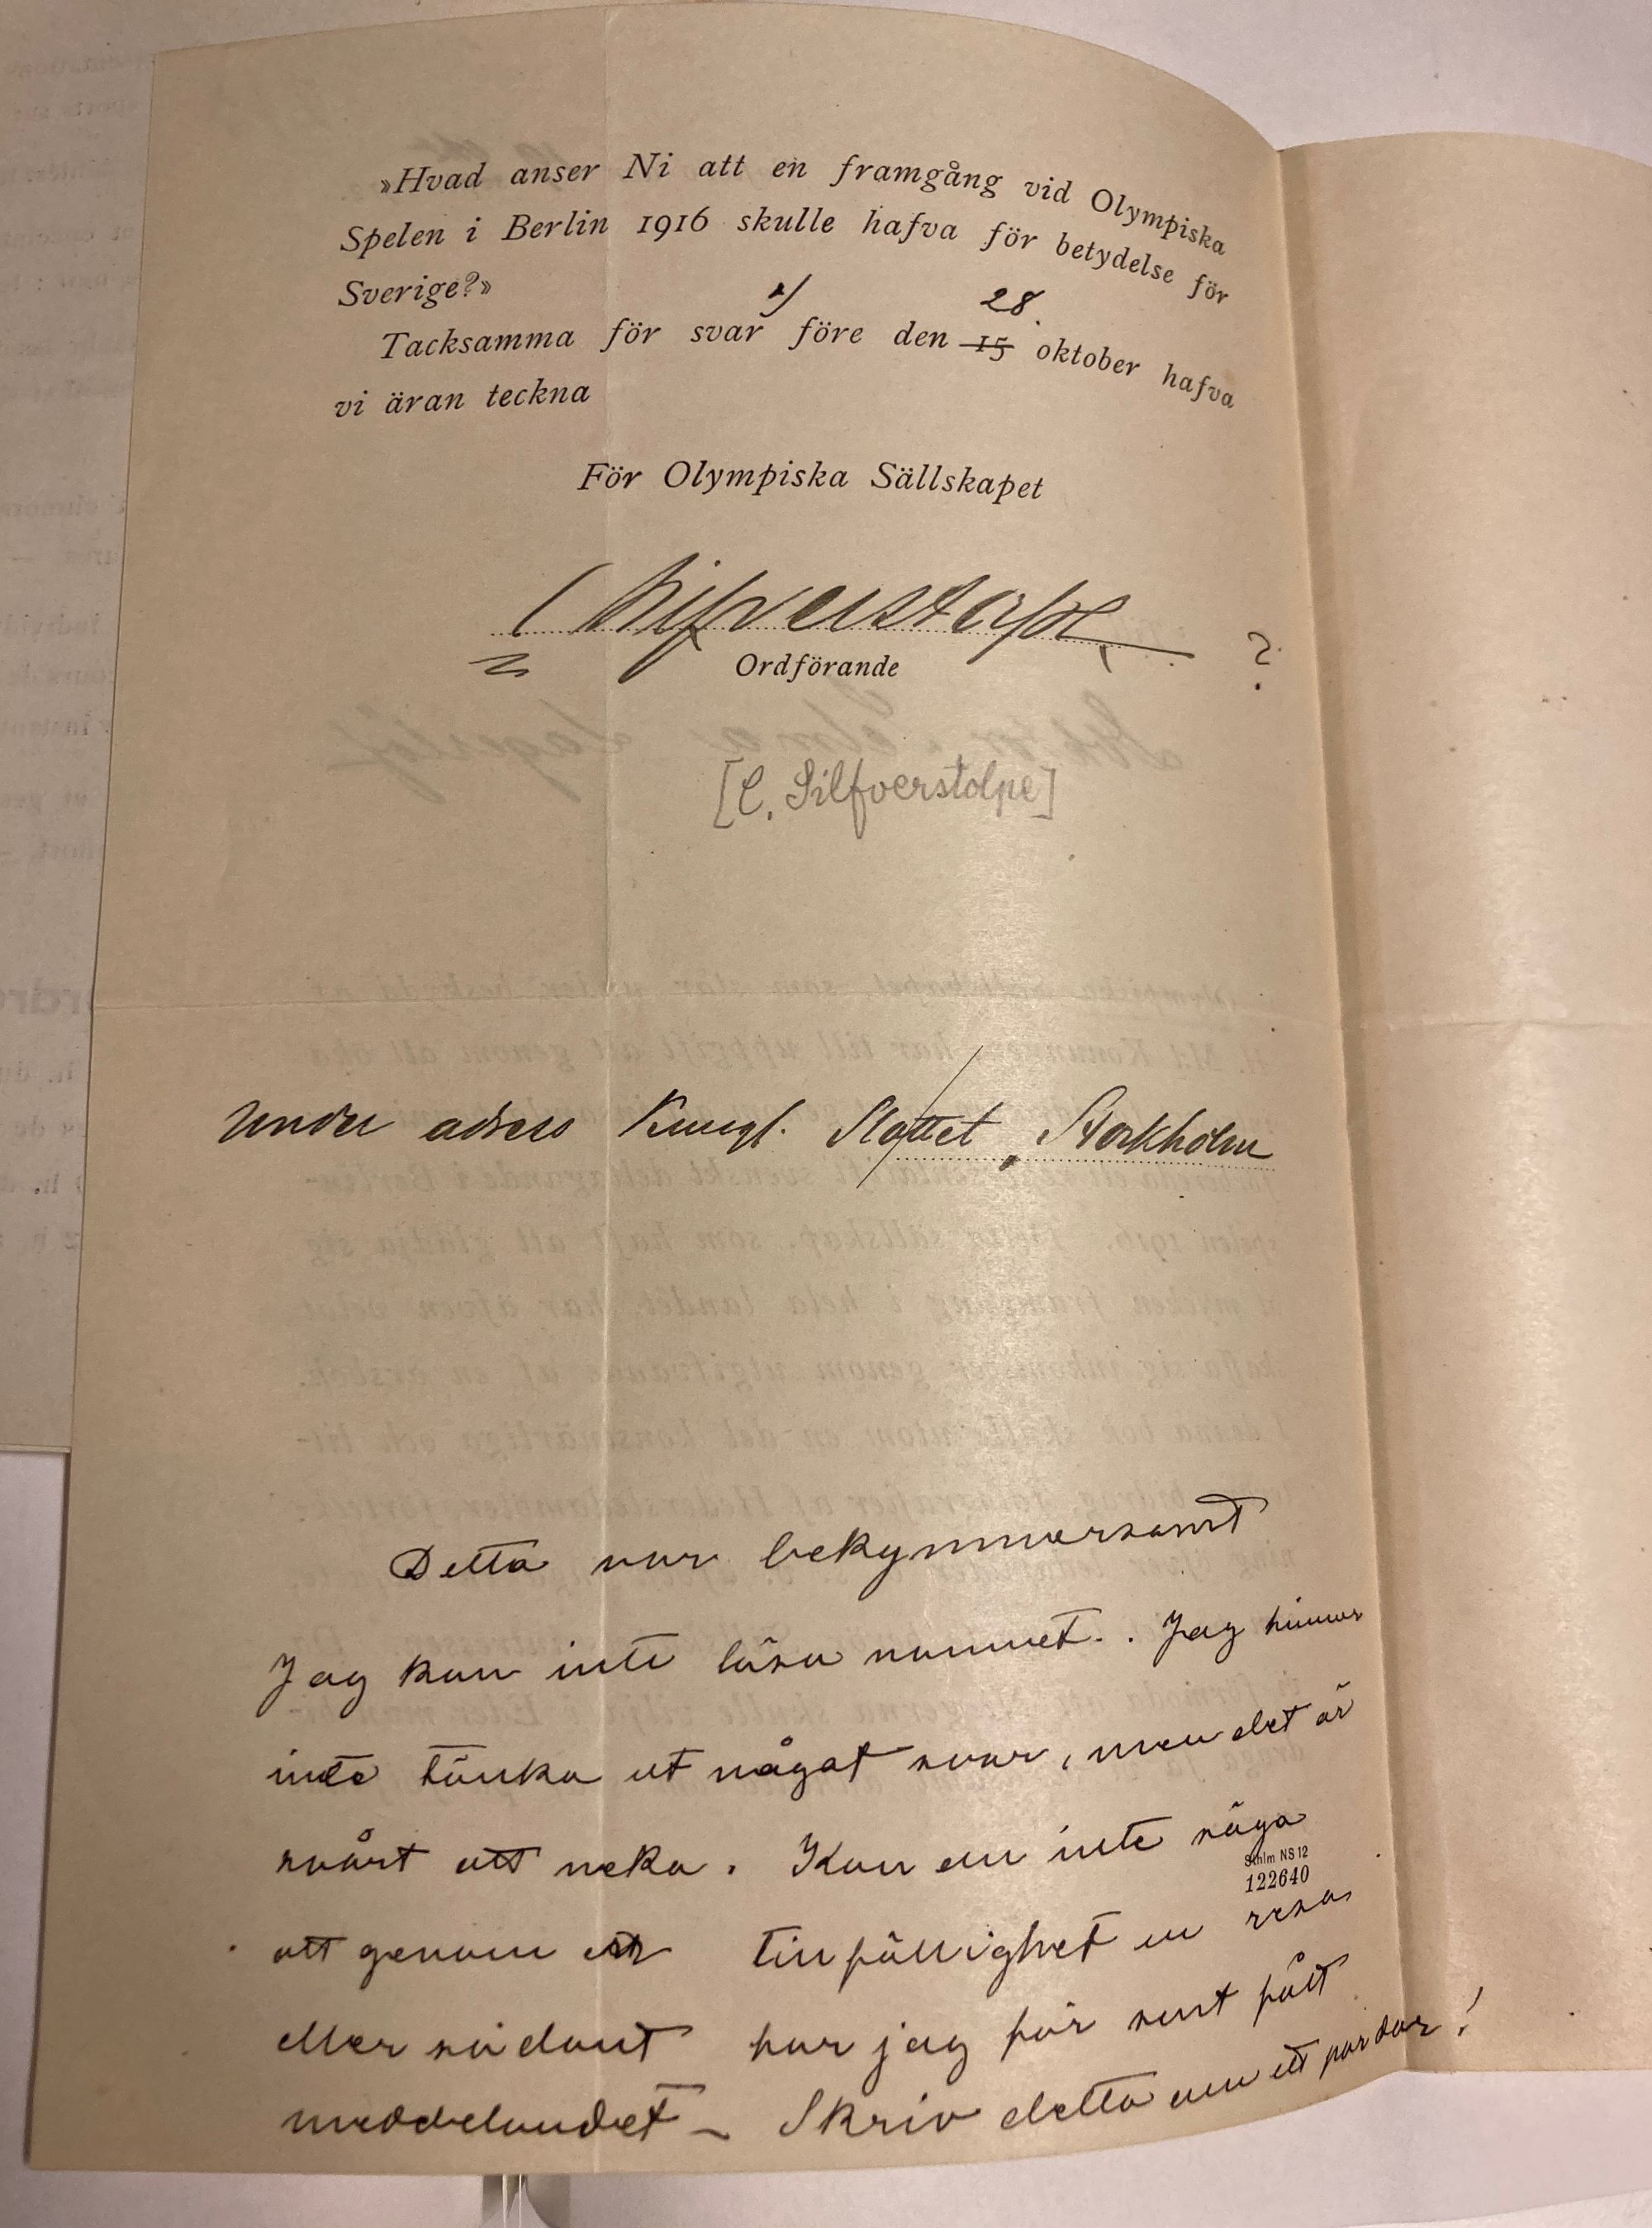 »Hvad anser Ni att en framgång vid Olympiska
Spelen i Berlin 1916 skulle hafva för betydelse för
Sverige?»
Tacksamma för svar före den 15 28. oktober hafva
vi äran teckna
För Olympiska Sällskapet
C Silfverstolpe
Ordförande
?
[C. Silfverstolpe]
under adress Kungl. Slottet, Stockholm
Detta var bekymmersamt
Jag kan inte läsa namnet.. Jag hinner
inte tänka ut något svar, men det är
svårt att neka. Kan en inte säga
Sthlm NS 12
122640
att genom en tillfällighet en resa
eller sådant har jag för sent fått
meddelandet – Skriv detta om ett par dar!